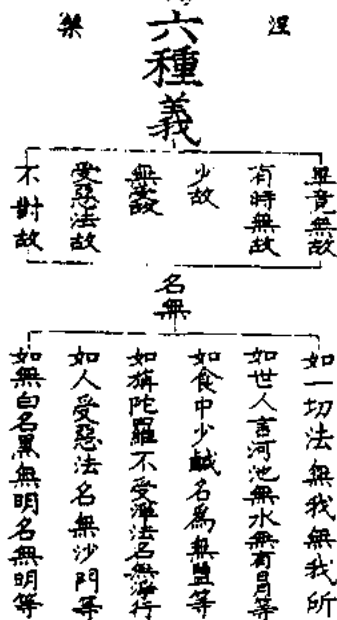 涅槃
六種義
畢竟無故
有時無故
少故
無受故
受惡法故
不對故
名無
如一切法無我無我所
如世人言河池無水無有日月等
如食中少鹹名爲無鹽等
如旃陀羅不受淨法名無淨行
如人受惡法名無沙門等
如無白名黑無明名無明等